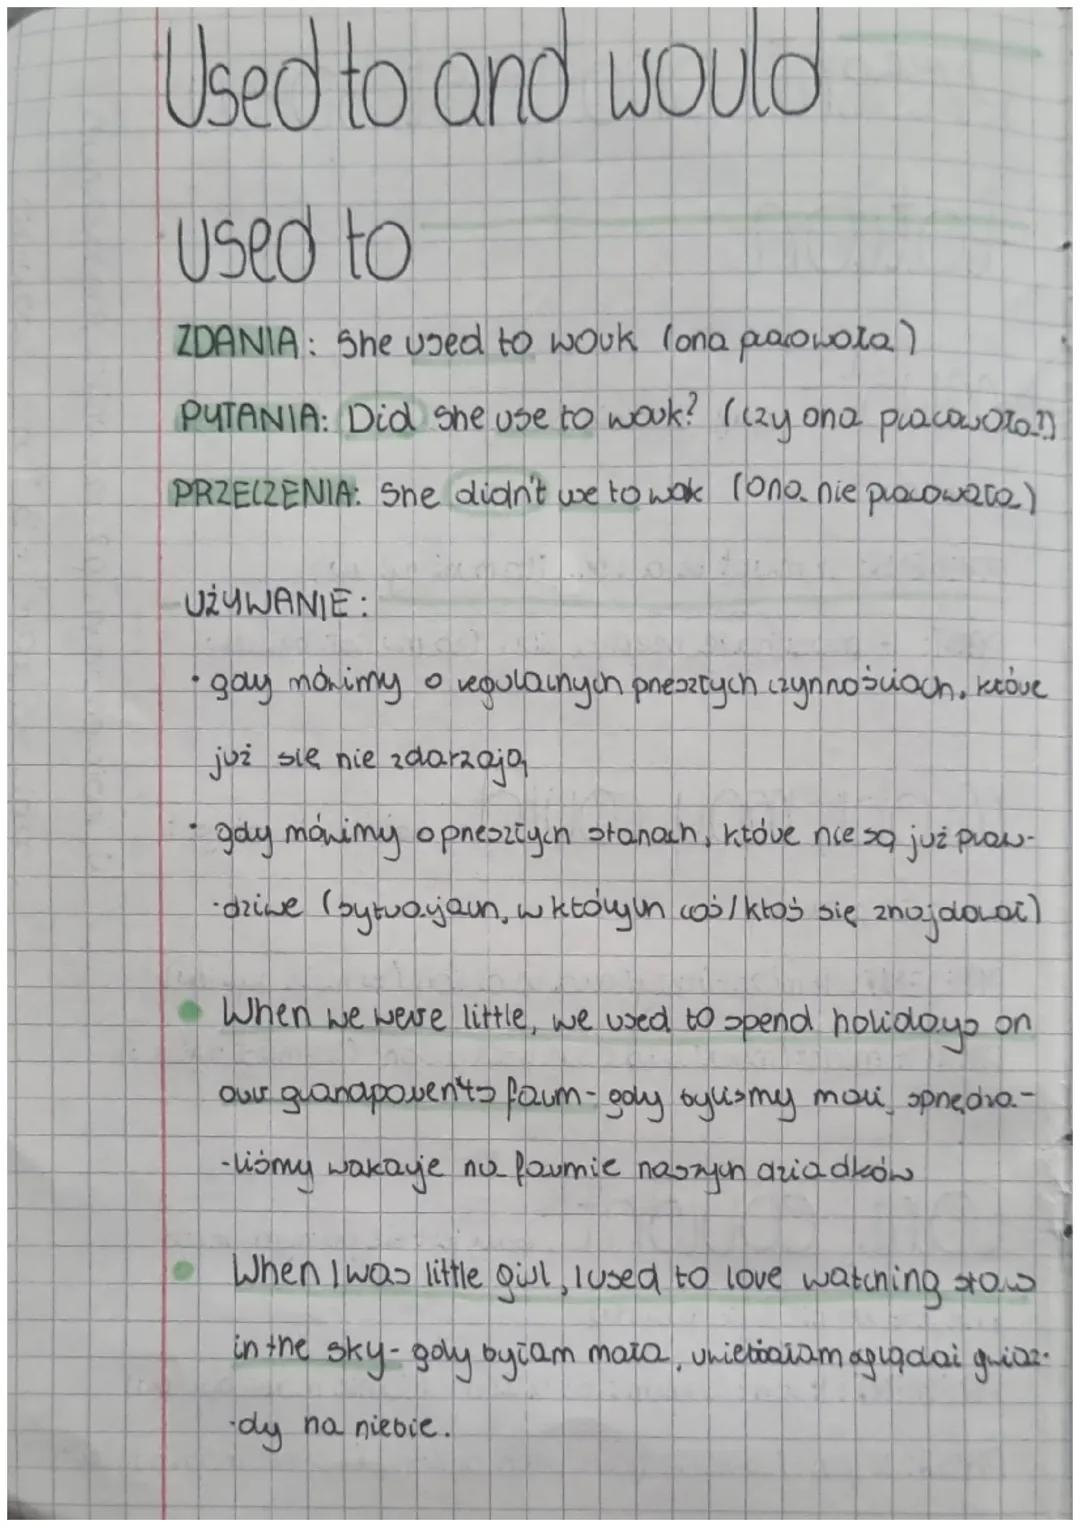 Used to and would
used to
ZDANIA: She used to work (ona pracowała)
PYTANIA: Did she use to work? (czy ona pracowała?)
PRZECZENIA: She didn't use to work (ona nie pracowała)
UŻYWANIE:
· gdy mówimy o regularnych przeszłych czynnościach, które
już się nie zdarzają
· gdy mówimy o przeszłych stanach, które nie są już praw-
-dziwe (sytuacjach, w którym coś/ktoś się znajdował)
• When we were little, we used to spend holidays on
our grandparents farm - gdy byliśmy mali, spędza-
-liśmy wakacje na farmie naszych dziadków
• When I was little girl, I used to love watching stars
in the sky - gdy byłam mała, uwielbiałam oglądać gwiaz-
-dy na niebie.